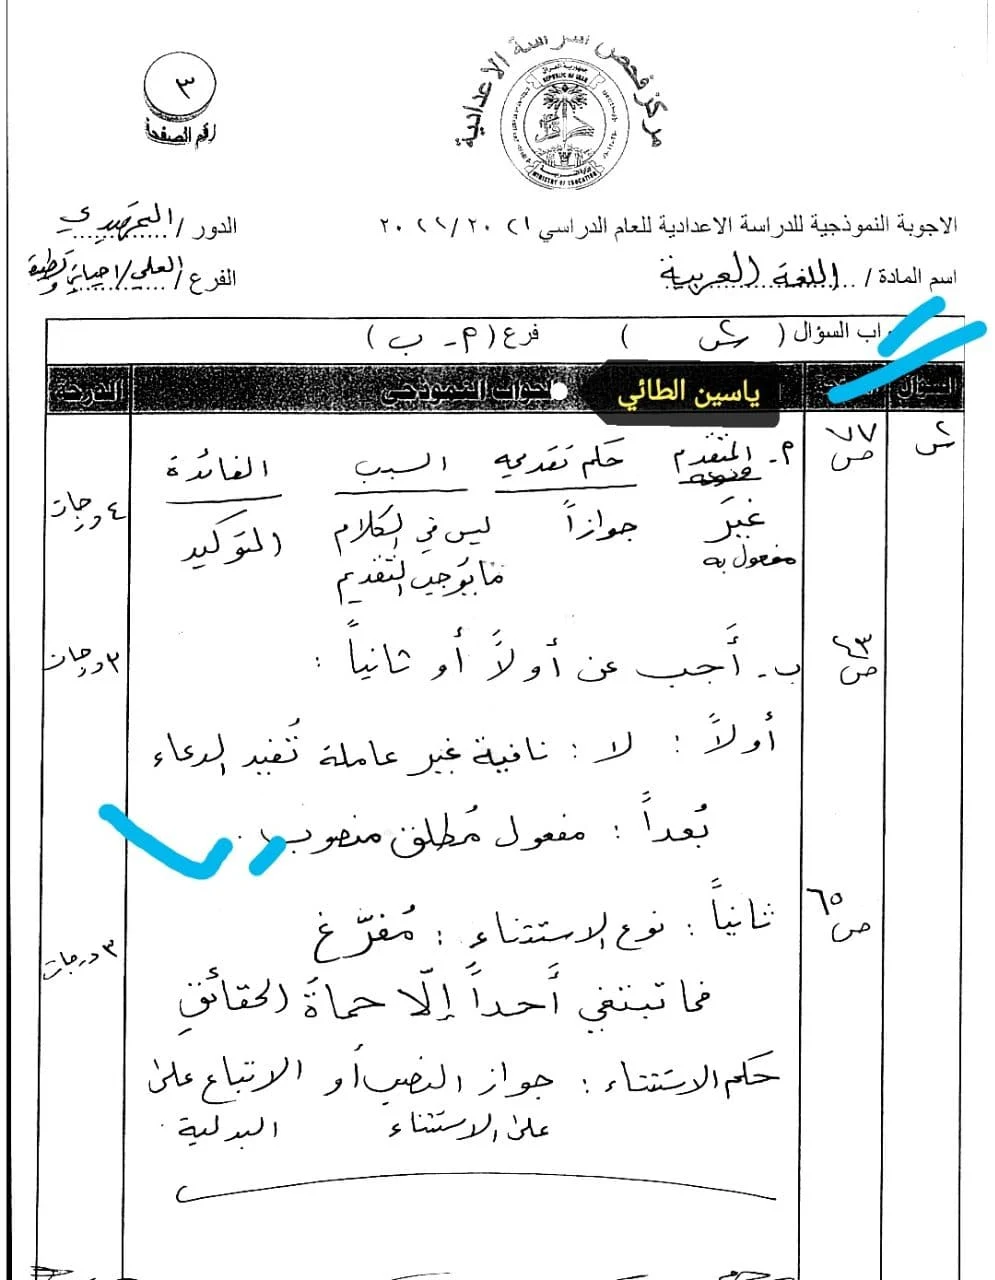 مركز فحص الدراسة الاعدادية
جمهورية العراق
REPUBLIC OF IRAQ
وزارة التربية
MINISTRY OF EDUCATION
٣
رقم الصفحة
الاجوبة النموذجية للدراسة الاعدادية للعام الدراسي ٢٠٢١/٢٠٢٢ الدور / التمهيدي
اسم المادة / اللغة العربية الفرع / العلمي/احيائي وتطبيقي
جواب السؤال ( ) فرع (م - ب)
السؤال الصفحة الجواب النموذجي الدرجة
ياسين الطائي
ص ٧٧
م- المتقدم ونوعه حكم تقديمه السبب الفائدة
٤ درجات
غيرَ جوازاً ليس في الكلام التوكيد
مفعول به ما يُوجب التقديم
ص ٤٣
ب- أَجب عن أولاً أو ثانياً :
٣ درجات
أولاً : لا : نافية غير عاملة تُفيد الدعاء
بُعداً : مفعول مُطلق منصوب .
ص ٦٥
ثانياً : نوع الاستثناء : مُفرّغ
٣ درجات
فما تبتغي أَحداً إلّا حماةَ الحقائقِ
حكم الاستثناء : جواز النصب أو الاتباع على
على الاستثناء البدلية .